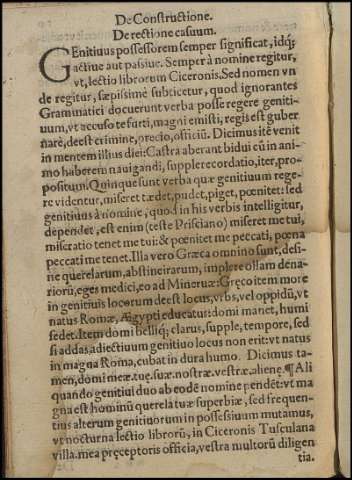 De Constructione.
De rectione casuum.
GEnitiuus possessorem semper significat, idq;
actiue aut passiue. Semper à nomine regitur,
vt, lectio librorum Ciceronis. Sed nomen vn
de regitur, sæpissimè subticetur, quod ignorantes
Grammatici docuerunt verba posse regere geniti-
uum, vt accuso te furti, magni emisti, regis est guber
nare, deest crimine, precio, officiũ. Dicimus itẽ venit
in mentem illius diei: Castra aberant bidui cũ in ani-
mo haberem nauigandi, supple recordatio, iter, pro-
positum. Quinque sunt verba quæ genitiuum rege-
re videntur, miseret tædet, pudet, piget, pœnitet: sed
genitiuus à nomine, quod in his verbis intelligitur,
dependet, est enim (teste Prisciano) miseret me tui,
miseratio tenet me tui: & pœnitet me peccati, pœna
peccati me tenet. Illa vero Græca omnino sunt, desi-
ne querelarum, abstine irarum, implere ollam dena-
riorũ, eges medici, eo ad Mineruæ: Græco item more
in genitiuis locorum deest locus, vrbs, vel oppidũ, vt
natus Romæ, Ægypti educatus: domi manet, humi
sedet. Item domi belliq; clarus, supple, tempore, sed
si addas adiectiuum genitiuo locus non erit: vt natus
in magna Roma, cubat in dura humo. Dicimus ta-
men, domi meæ. tuę. suæ. nostræ. vestræ. alienę. ¶Ali
quando genitiui duo ab eodẽ nomine pendẽt: vt ma
gna est hominũ querela tuæ superbiæ, sed frequen-
tius alterum genitiuorum in possessiuum mutamus,
vt nocturna lectio librorũ, in Ciceronis Tusculana
villa. mea pręceptoris officia, vestra multorũ diligen
tia.